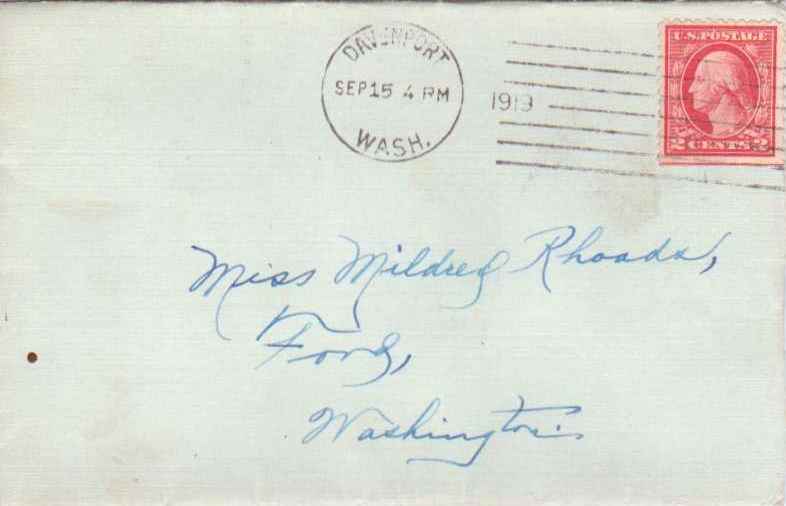 DAVENPORT
SEP 15 4 PM
WASH.
1919
U.S. POSTAGE
2 CENTS 2
Miss Mildred Rhoads,
Ford,
Washington.